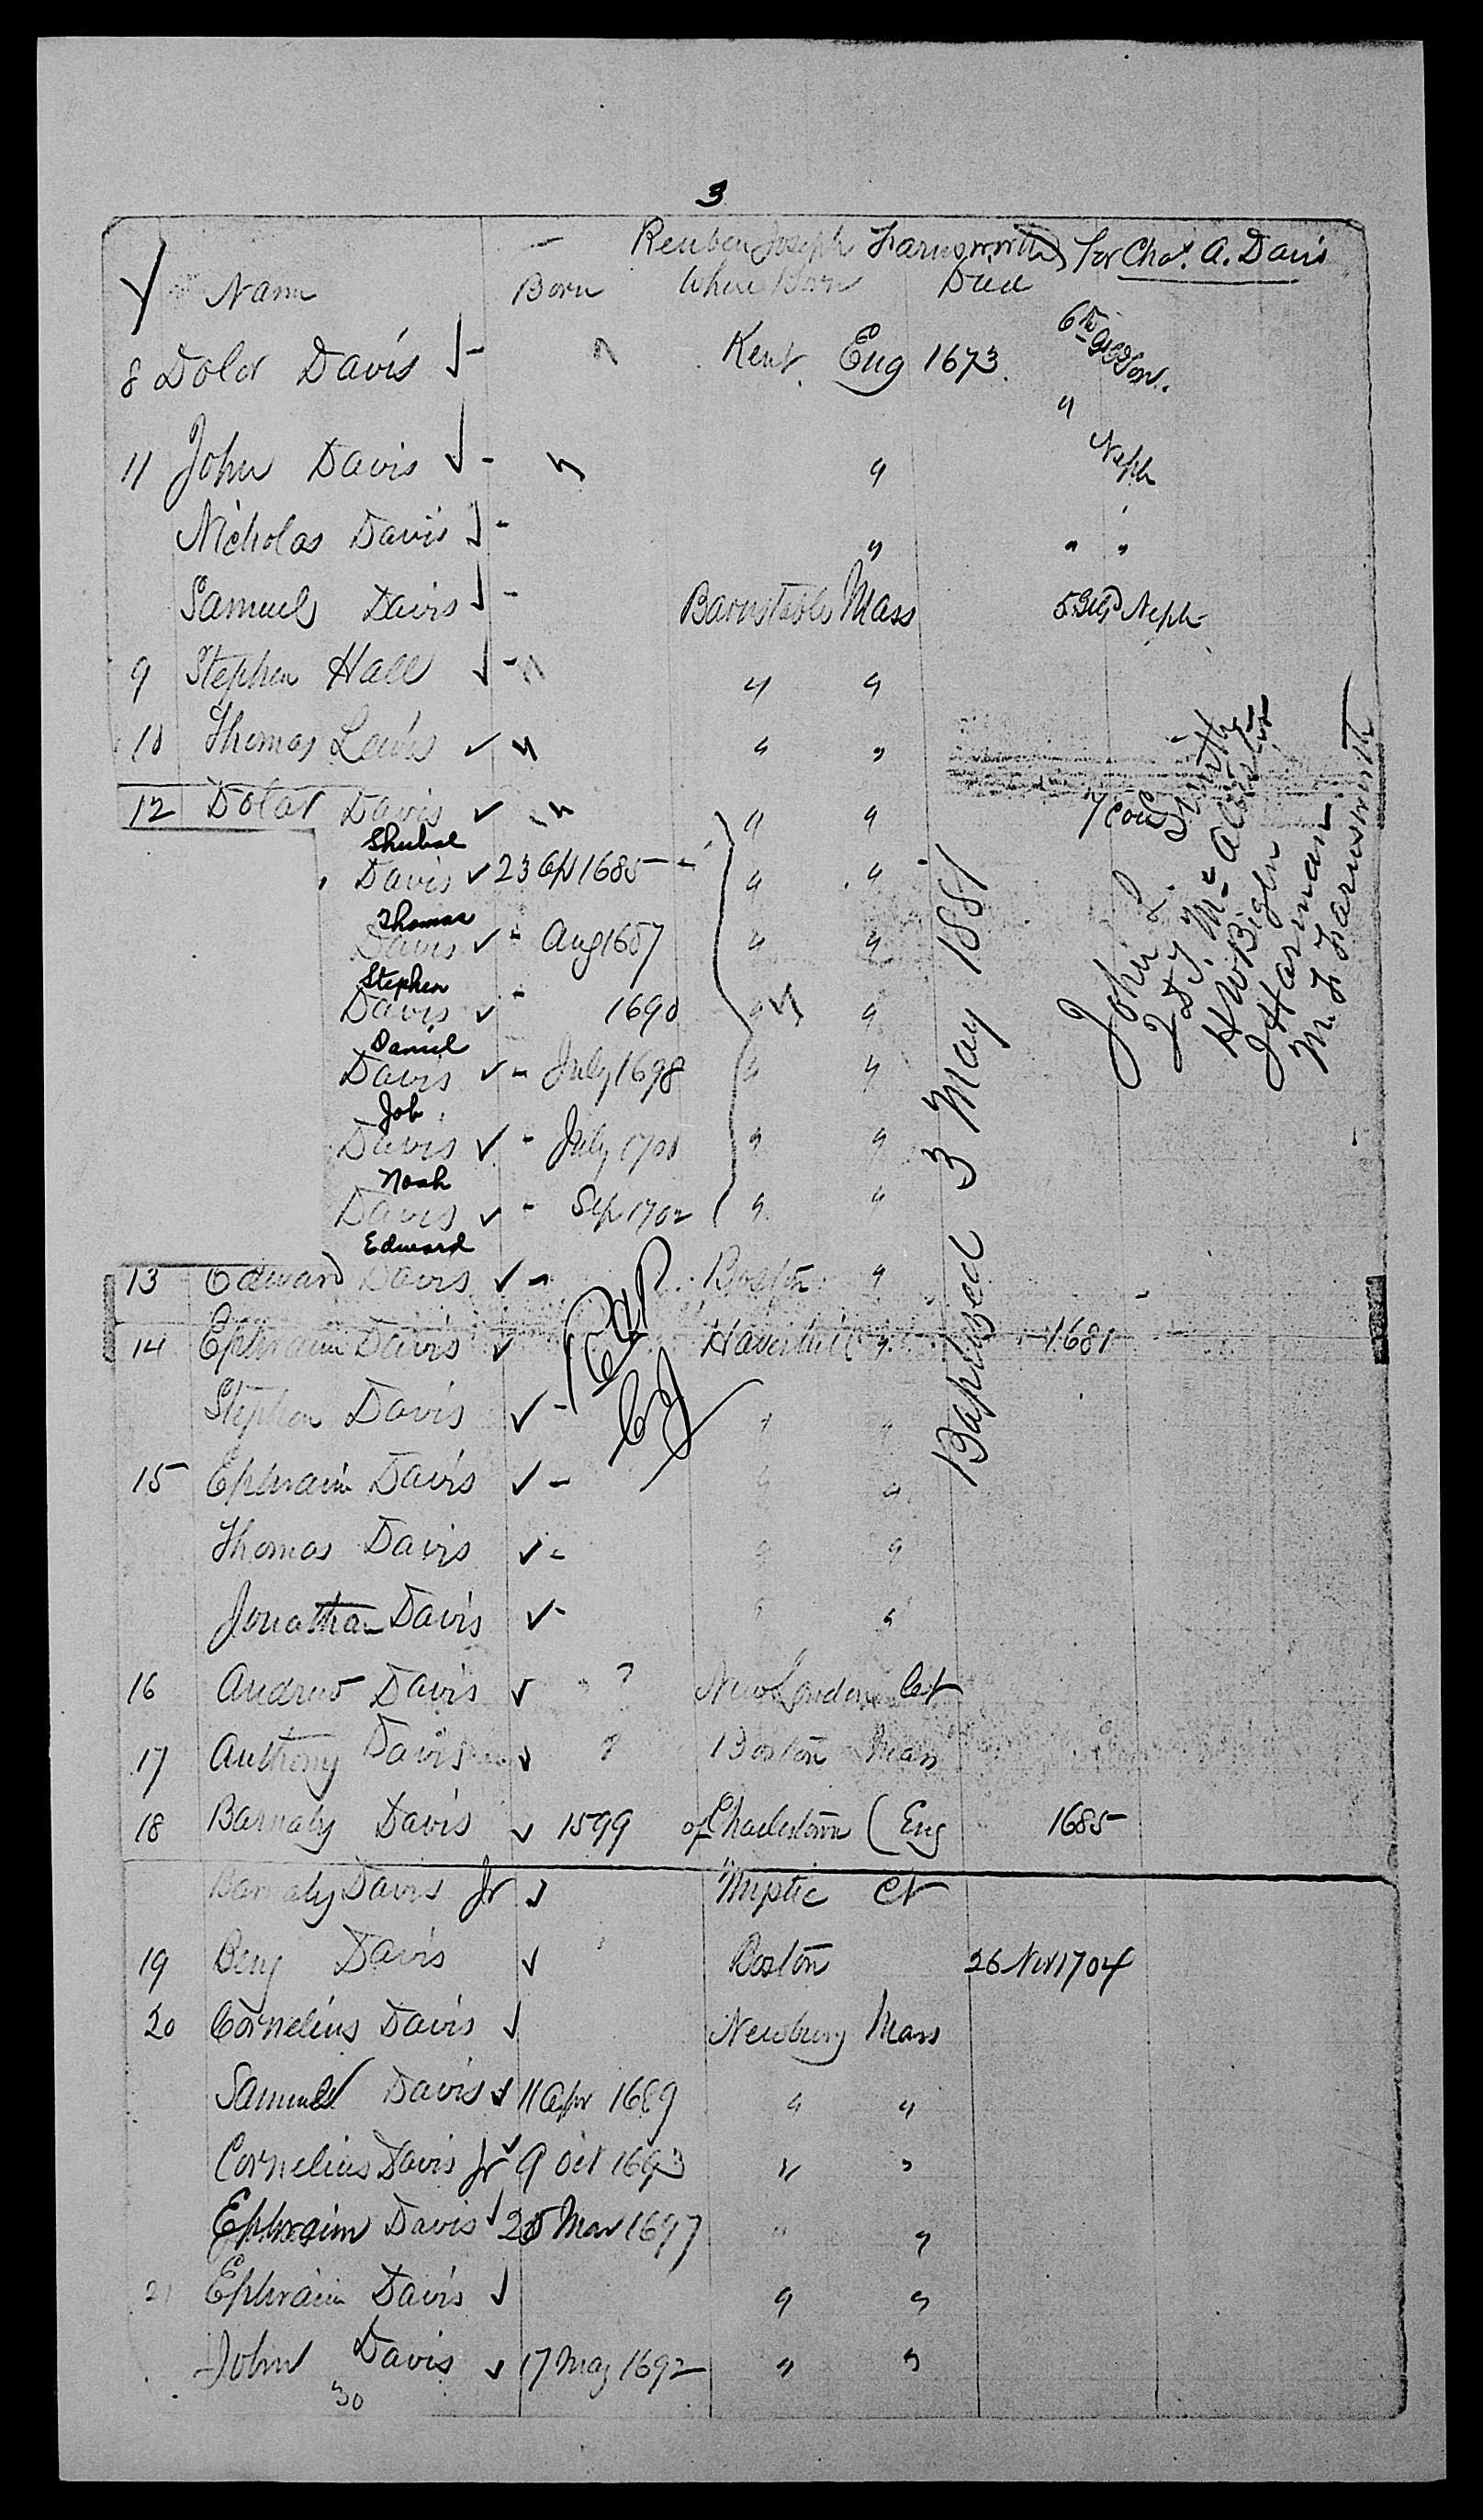 3
Reuben Joseph Farnsworth for Chas. A. Davis
Name Born Where Born Died
8 Dolor Davis Kent Eng 1673.
"
11 John Davis " " Neph
Nicholas Davis " " "
Samuel Davis Barnstable Mass Neph
9 Stephen Hall " " "
10 Thomas Lewis " " "
12 Dolar Davis " " " 7 Cous
Shubal
Davis 23 Ap 1685 " "
Thomas
Davis Aug 1687 " "
Stephen
Davis 1690 " "
Daniel
Davis July 1698 " "
Job
Davis July 1700 " "
Noah
Davis Sep 1702 " "
Edward
13 Edward Davis Boston "
14 Ephraim Davis Haverhill " 1681
Stephen Davis " "
15 Ephraim Davis " "
Thomas Davis " "
Jonathan Davis " "
16 Andrew Davis ? New London Ct
17 Anthony Davis ? Boston Mass
18 Barnaby Davis 1599 of Charlestown (Eng 1685
Barnaby Davis Jr Myptic Ct
19 Benj Davis Boston 26 Nov 1704
20 Cornelius Davis Newbury Mass
Samuel Davis 11 Apr 1689 " "
Cornelius Davis Jr 9 Oct 1693 " "
Ephraim Davis Mar 1697 " "
21 Ephraim Davis " "
John Davis 17 May 1692 " "
30
Baptized 3 May 1881
John L. Smith
D J McAllister
H W Bigler
J Harman
M. F. Farnsworth